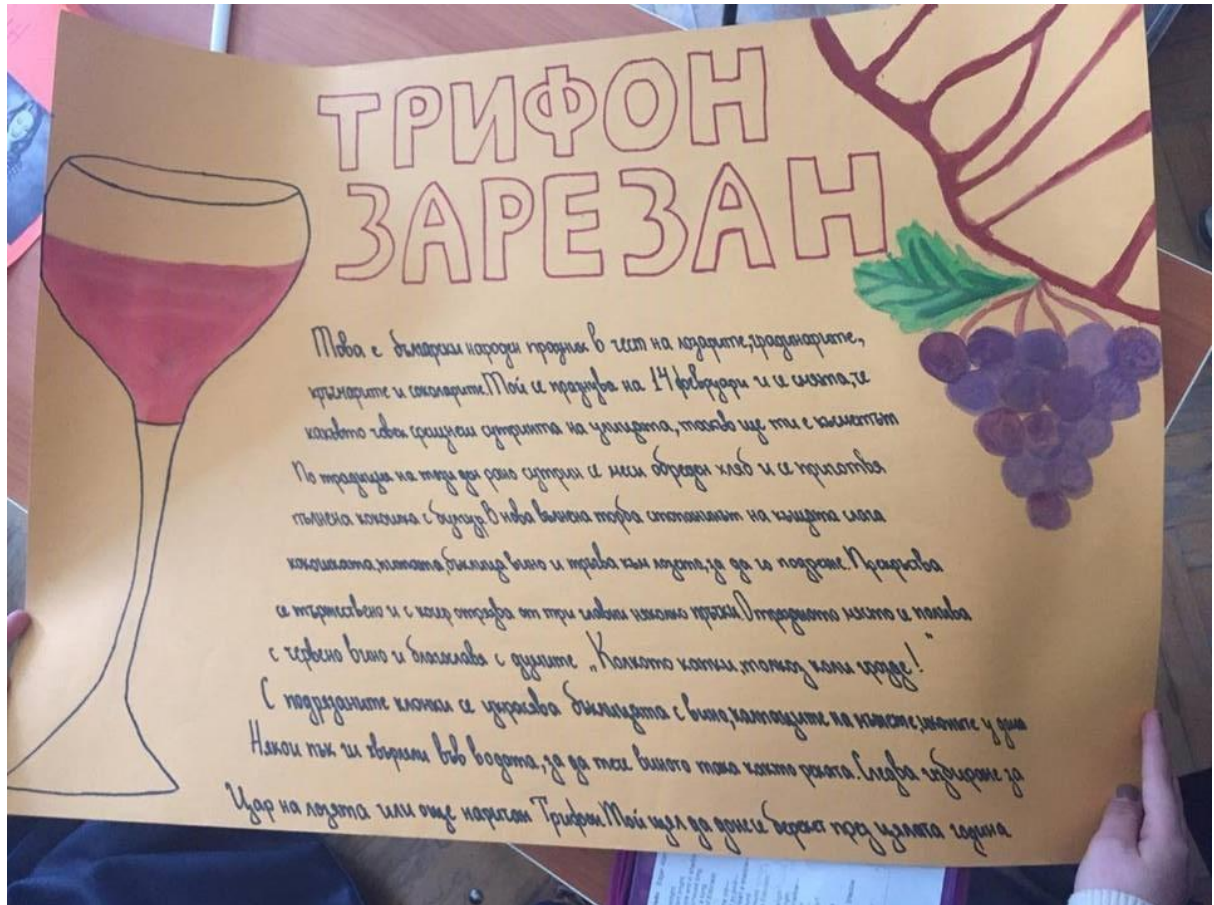 ТРИФОН
ЗАРЕЗАН
Това е български народен празник в чест на лозарите, градинарите,
кръчмарите и соколарите. Той се празнува на 14 февруари и се смята, че
каквото човек срещнеш сутринта на улицата, такъв ще ти е късметът
По традиция на този ден рано сутрин се меси обреден хляб и се приготвя
пълнена кокошка с булгур. В нова вълнена торба стопанинът на къщата слага
кокошката, питата, бъклица вино и тръгва към лозето, за да го подреже. Прекръства
се тържествено и с косер отрязва от три главини няколко пръчки. Отрязаното място се полива
с червено вино и благославя с думите „Колкото капки, толкоз коли грозде!“
С подрязаните клонки се украсява бъклицата с вино, калпаците на мъжете, иконите у дома
Някои пък ги хвърлят във водата, за да тече виното така както реката. Следва избиране за
Цар на лозята или още наричан Трифон. Той щял да донесе берекет през цялата година